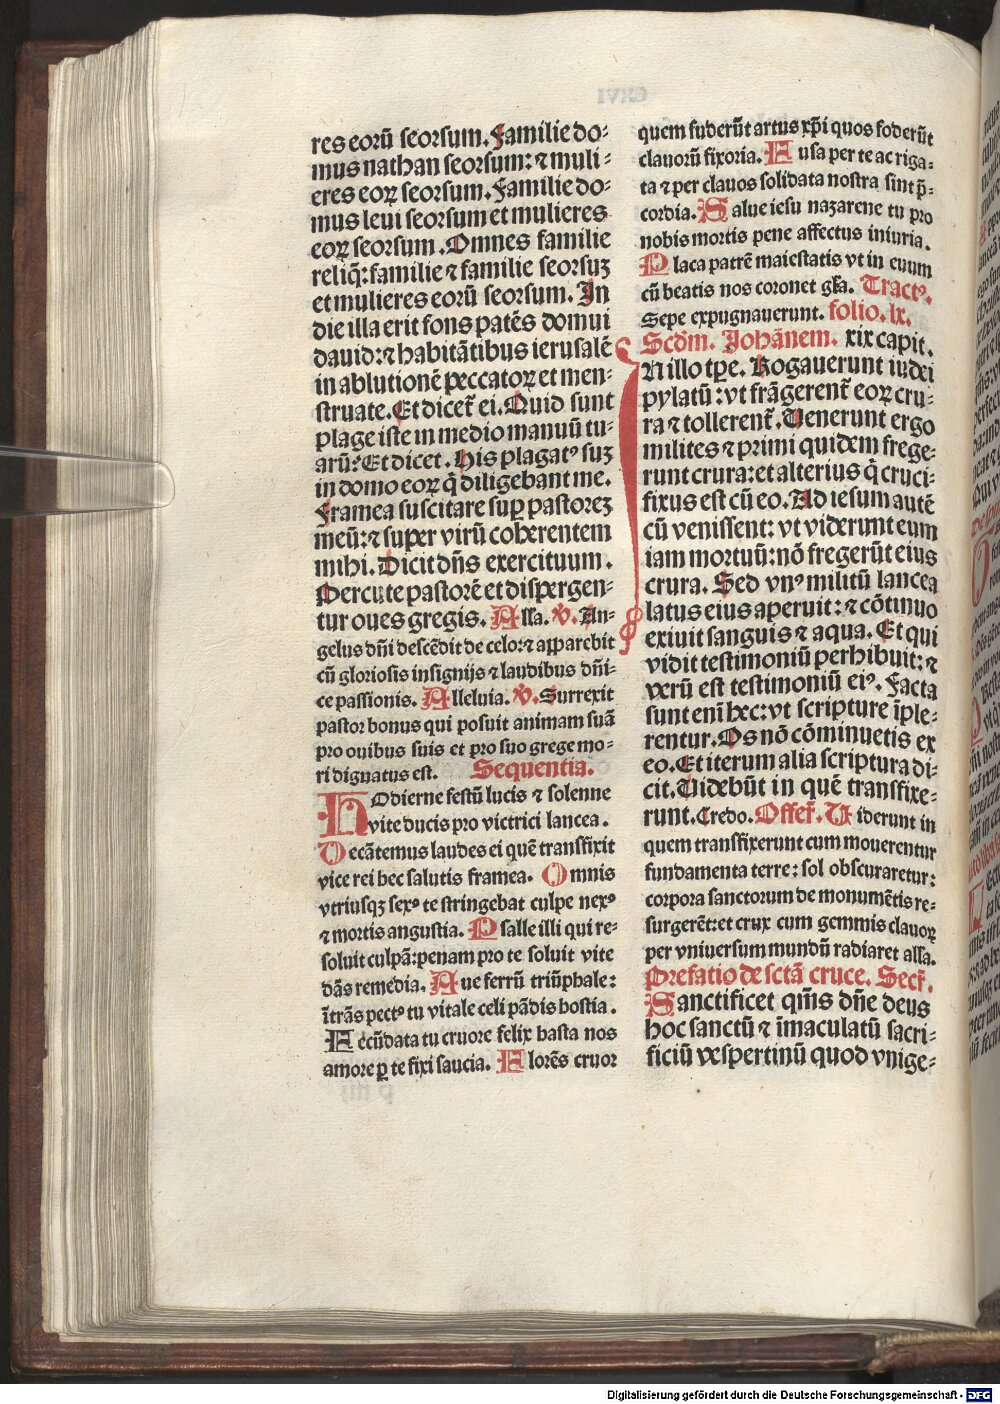 res eorū seorsum. Familie do⸗
mus nathan seorsum: ⁊ muli⸗
eres eoꝝ seorsum. Familie do⸗
mus leui seorsum et mulieres
eoꝝ seorsum. Omnes familie
reliq̄: familie ⁊ familie seorsuꝫ
et mulieres eorū seorsum. In
die illa erit fons patēs domui
dauid: ⁊ habitātibus ierusalē
in ablutionē peccatoꝝ et men⸗
struate. Et dicet̄ ei. Quid sunt
plage iste in medio manuū tu⸗
arū? Et dicet. His plagatꝰ suꝫ
in domo eoꝝ q̄ diligebant me.
Framea suscitare suꝑ pastoreꝫ
meū: ⁊ super virū coherentem
mihi. Dicit dn̄s exercituum.
Percute pastorē et dispergen⸗
tur oues gregis. Alla. ꝟ. An⸗
gelus dn̄i descēdit de celo: ⁊ apparebit
cū gloriosis insignijs ⁊ laudibus dn̄i⸗
ce passionis. Alleluia. ꝟ. Surrexit
pastor bonus qui posuit animam suā
pro ouibus suis et pro suo grege mo⸗
ri dignatus est. Sequentia.
Hodierne festū lucis ⁊ solenne
vite ducis pro victrici lancea.
Decātemus laudes ei quē transfixit
vice rei hec salutis framea. Omnis
vtriusqꝫ sexꝰ te stringebat culpe nexꝰ
⁊ mortis angustia. Psalle illi qui re⸗
soluit culpā: penam pro te soluit vite
dās remedia. Aue ferrū triūphale:
ītrās pectꝰ tu vitale celi pādis hostia.
Fecūdata tu cruore felix hasta nos
amore ꝑ te fixi saucia. Florēs cruor
quem fuderūt artus xp̄i quos foderūt
clauorū fixoria. Fusa per te ac riga⸗
ta ⁊ per clauos solidata nostra sint p̄⸗
cordia. Salue iesu nazarene tu pro
nobis mortis pene affectus iniuria.
Placa patrē maiestatis vt in euum
cū beatis nos coronet gl̄a. Tractꝰ.
Sepe expugnauerunt. folio. lx.
Scd̄m. Johānem. xix capit.
IN illo tp̄e. Rogauerunt iudei
pylatū: vt frāgerent̄ eoꝝ cru⸗
ra ⁊ tollerent̄. Venerunt ergo
milites ⁊ primi quidem frege⸗
runt crura: et alterius q̄ cruci⸗
fixus est cū eo. Ad iesum autē
cū venissent: vt viderunt eum
iam mortuū: nō fregerūt eius
crura. Sed vnꝰ militū lancea
latus eius aperuit: ⁊ cōtinuo
exiuit sanguis ⁊ aqua. Et qui
vidit testimoniū perhibuit: ⁊
verū est testimoniū eiꝰ. Facta
sunt enī hec: vt scripture īple⸗
rentur. Os nō cōminuetis ex
eo. Et iterum alia scriptura di⸗
cit. Videbūt in quē transfixe⸗
runt. Credo. Offer̄. Viderunt in
quem transfixerunt cum mouerentur
fundamenta terre: sol obscuraretur:
corpora sanctorum de monumētis re⸗
surgerēt: et crux cum gemmis clauoꝝ
per vniuersum mundū radiaret alla.
Prefatio de sctā cruce. Secr̄.
Sanctificet qm̄s dn̄e deus
hoc sanctū ⁊ īmaculatū sacri⸗
ficiū vespertinū quod vnige⸗
Digitalisierung gefördert durch die Deutsche Forschungsgemeinschaft - DFG